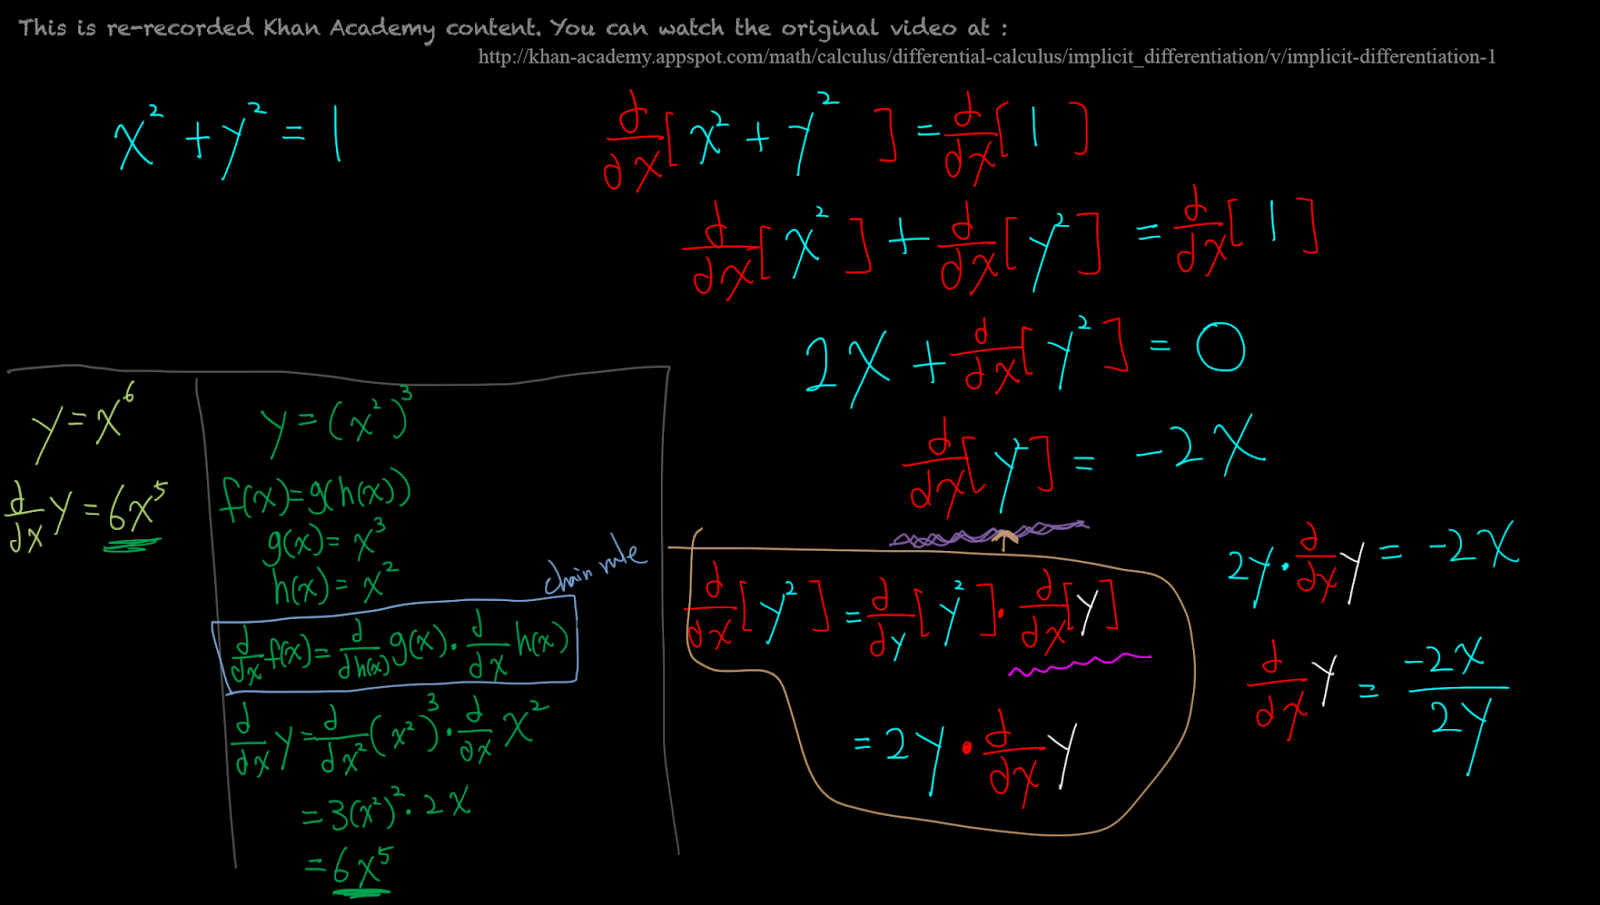 This is re-recorded Khan Academy content. You can watch the original video at :
http://khan-academy.appspot.com/math/calculus/differential-calculus/implicit_differentiation/v/implicit-differentiation-1
x² + y² = 1
d/dx[x² + y²] = d/dx[1]
d/dx[x²] + d/dx[y²] = d/dx[1]
2x + d/dx[y²] = 0
d/dx[y²] = -2x
y = x⁶
d/dx y = 6x⁵
y = (x²)³
f(x) = g(h(x))
g(x) = x³
h(x) = x²
chain rule
d/dx f(x) = d/dh(x) g(x) · d/dx h(x)
d/dx y = d/dx² (x²)³ · d/dx x²
= 3(x²)² · 2x
= 6x⁵
d/dx[y²] = d/dy[y²] · d/dx[y]
= 2y · d/dx y
2y · d/dx y = -2x
d/dx y = -2x/2y